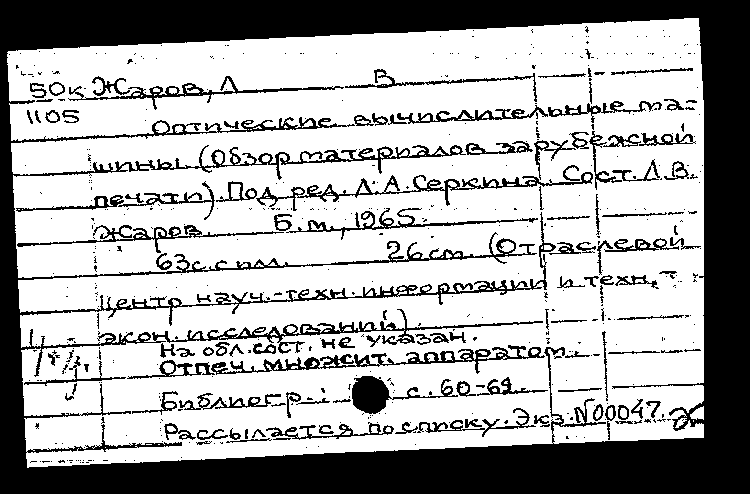 50к Жаров, Л В
1105
Оптические вычислительные ма-
шины (Обзор материалов зарубежной
печати). Под ред. Л.А. Серкина. Сост. Л.В.
Жаров. Б.м., 1965.
63с. с илл. 26 см. (Отраслевой
центр науч.-техн. информации и техн.-
экон. исследований).
На обл. сост. не указан.
Отпеч. множит. аппаратом.
Библиогр.: с. 60-62.
Рассылается по списку. Экз. N00047.